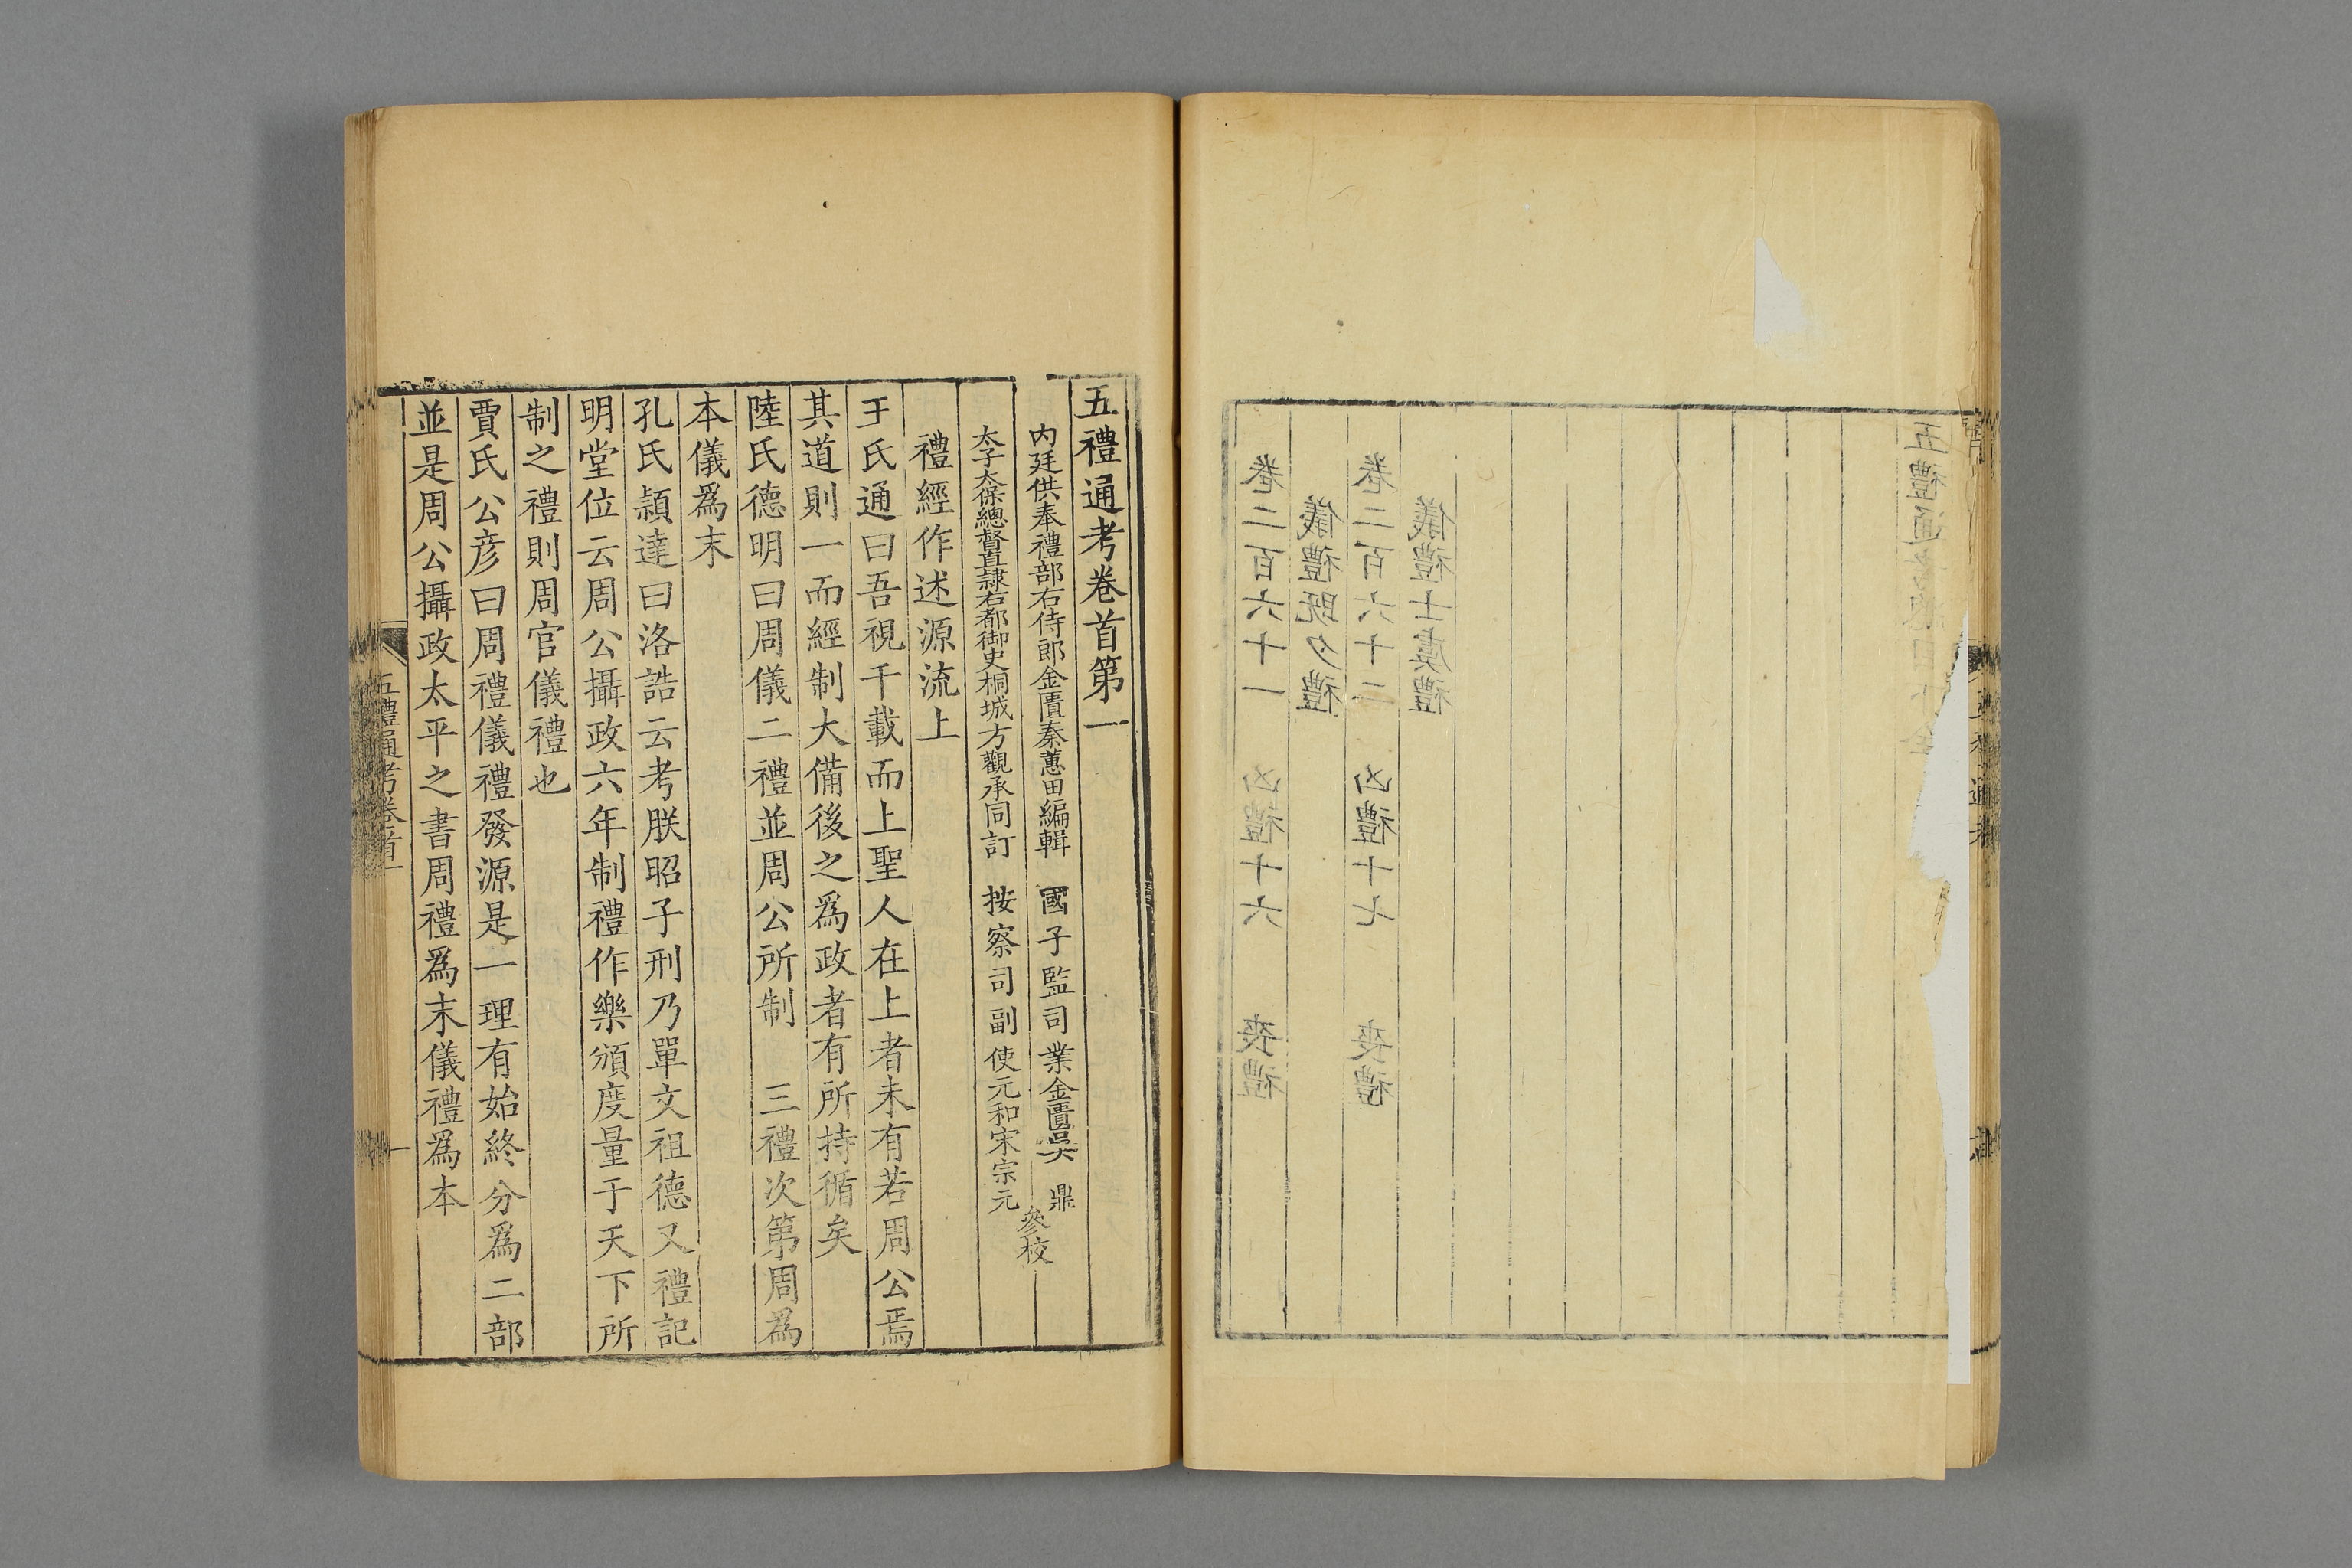 卷二百六十一 凶禮十六 喪禮
儀禮既夕禮
卷二百六十二 凶禮十七 喪禮
儀禮士虞禮
五禮通考總目下
五禮通考卷首第一
內廷供奉禮部右侍郎金匱秦蕙田編輯 國子監司業金匱吳 鼎
太子太保總督直隸右都御史桐城方觀承同訂 按察司副使元和宋宗元
參校
禮經作述源流上
王氏通曰吾視千載而上聖人在上者未有若周公焉
其道則一而經制大備後之爲政者有所持循矣
陸氏德明曰周儀二禮並周公所制 三禮次第周爲
本儀爲末
孔氏穎達曰洛誥云考朕昭子刑乃單文祖德又禮記
明堂位云周公攝政六年制禮作樂頒度量于天下所
制之禮則周官儀禮也
賈氏公彥曰周禮儀禮發源是一理有始終分爲二部
並是周公攝政太平之書周禮爲末儀禮爲本
五禮通考卷首一
一